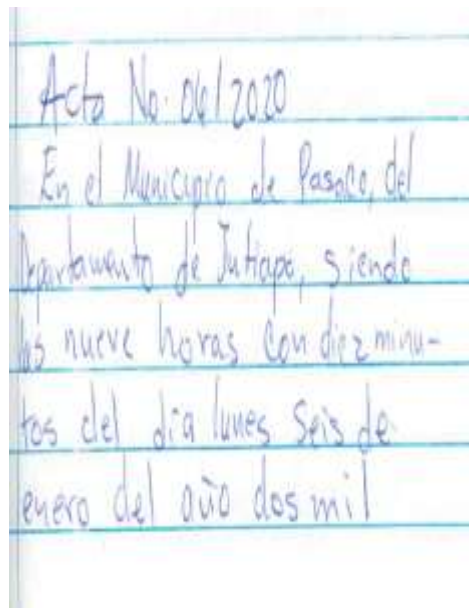 Acta No. 06/2020
En el Municipio de Pasaco, del
Departamento de Jutiapa, siendo
las nueve horas con diez minu-
tos del día lunes seis de
enero del año dos mil